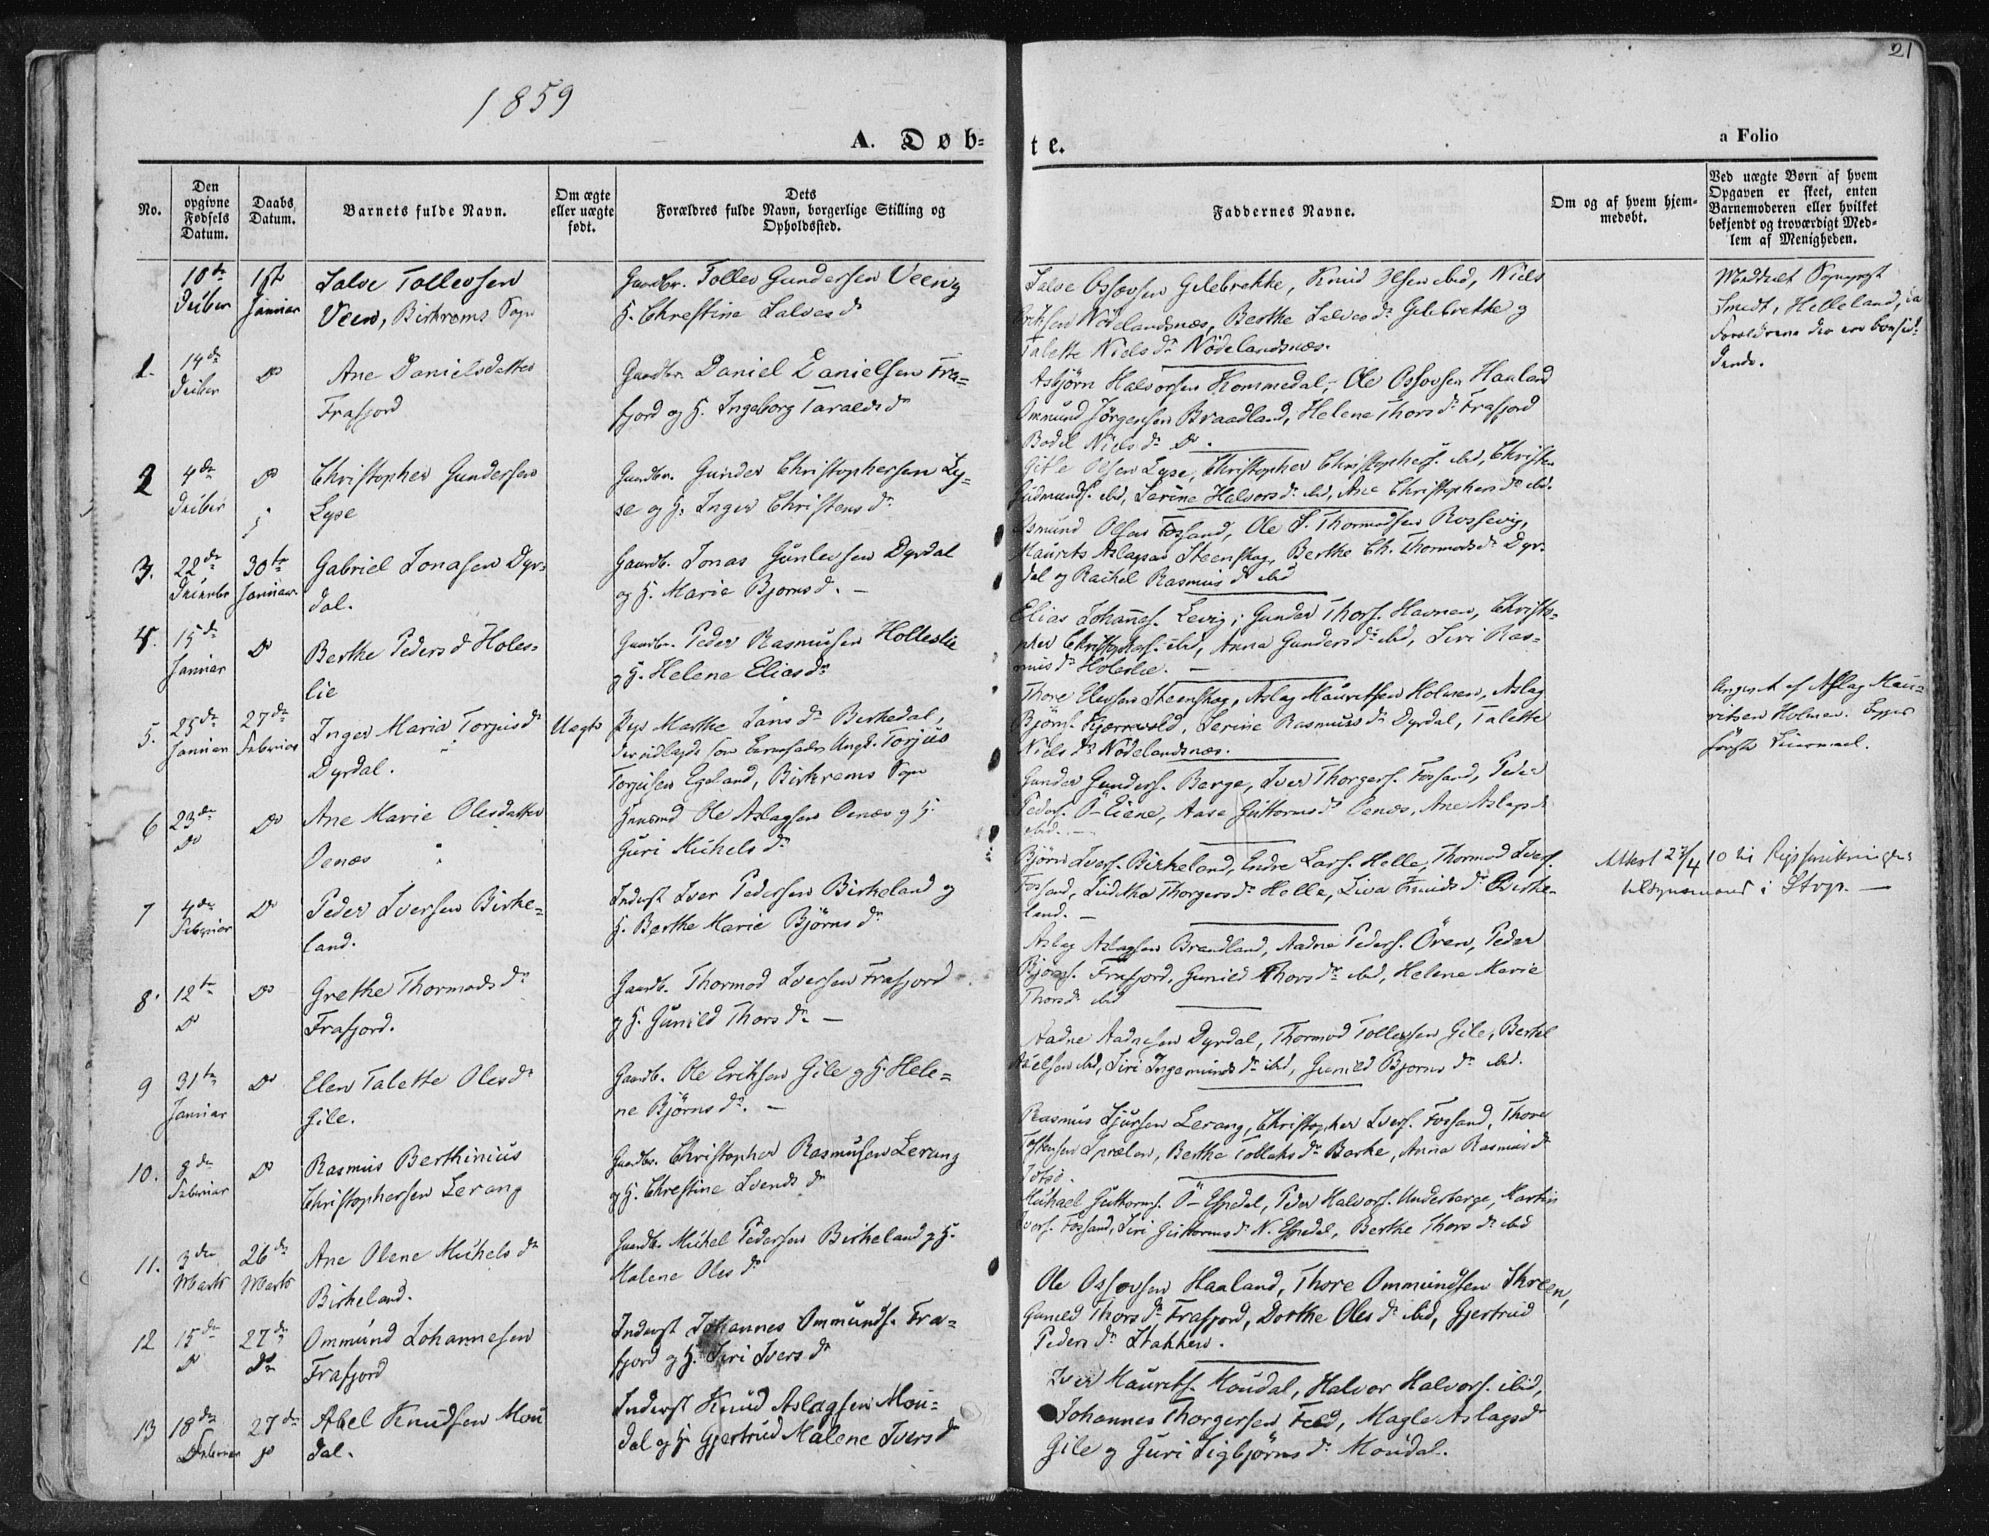 21
1859
A. Døb-
te.
a Folio
No.
Den opgivne Fødsels Datum.
Daabs Datum.
Barnets fulde Navn.
Om ægte eller uægte født.
Dets Forældres fulde Navn, borgerlige Stilling og Opholdssted.
Faddernes Navne.
Om og af hvem hjem-
medøbt.
Ved uægte Børn af hvem
Opgaven er skeet, enten
Barnemoderen eller hvilket
bekjendt og troværdigt Med-
lem af Menigheden.
18de Deiber
1ste Januar
Salve Tollevsen
Veen, Birkrems Sogn
Gaardbr. Tollev Gundersen Veen og
H. Chrestine Salves dr
Salve Ossovsen Gilebrekke, Knud Olsen ibid, Niels
Eriksen Nødelandsnæs, Berthe Salves dr Gilebrekke og
Talette Niels dr Nødelandsnæs.
Meddeelt Sognepræst
Smedt, Helleland, da
Forældrene der ere bosid-
dende.
1. 14de Deiber
Do
Ane Danielsdatter
Frafjord
Gaardbr. Daniel Danielsen Fra-
fjord og H. Ingeborg Taralds dr
Asbjørn Halvorsen Kommedal, Ole Ossovsen Haaland
Ommund Jørgensen Braadland, Helene Thors dr Frafjord
Bodil Niels dr Do.
2 4de Deiber
Do
Christopher Gundersen
Lyse
Gaardbr. Gunder Christophersen Ly-
se og H. Inger Christens dr
Gitle Olsen Lyse, Christopher Christophers. ibid, Christen
Gudmunds. ibid, Serine Halvors dr ibid, Ane Christophers dr ibid.
3. 28de Deiember
30te Januar
Gabriel Jonasen Dyr-
dal.
Gaardb. Jonas Gunlevsen Dyrdal
og H. Marie Bjørns d. –
Asmund Olsen Fossand, Ole S. Thormodsen Rossevig,
Maurits Aslagsen Steenskog, Berthe Ch. Thormods dr Dyr-
dal og Rachel Rasmus dr ibid
4. 15de Januar
Do
Berthe Peders d Holes-
lie
Gaardbr. Peder Rasmusen Holleslie
og H. Helene Elias dr
Elias Johans. Levig, Gunder Thors. Havnen, Christo-
pher Christophers. ibid, Anna Gunders dr ibid, Siri Ras-
mus dr Holeslie. –
5. 25de Januar
27de Februar
Inger Maria Torjus dr
Dyrdal.
Uægte
Pige Marthe Jans dr Birkedal,
der udlagde som Barnefader Ungk. Torjus
Torjusen Egeland, Birkrems Sogn
Thore Elevsen Steenskog, Aslag Mauritsen Holmen, Aslag
Bjørns. Kjærrvold, Serine Rasmus dr Dyrdal, Talette
Niels dr Nødelandsnæs.
Angivet af Aslag Mau-
ritsen Holmen. Begges
første Leiermaal.
6 23de Do
Do
Ane Marie Olesdatter
Oenæs
Huusmd Ole Aslagsen Oenæs og H.
Guri Michels dr
Gunder Gunders. Berge, Iver Thorgers. Fossand, Peder
Peders. Ø-Eiene, Aase Guttorms dr Oenæs, Ane Aslags dr
ibid. –
7 4de Februar
Do
Peder Iversen Birke-
land.
Inderst Iver Pedersen Birkeland og
H. Berthe Marie Bjørns dr
Bjørn Ivers. Birkeland, Endre Lars. Helle, Thormod Ivers.
Fossand, Thorgers dr Helle, Siva Knuds dr Birke-
land. –
Attest 23/4 10 til
i Stvgr. –
8. 12te Do
Do
Grethe Thormods dr
Frafjord.
Gaardb. Thormod Iversen Frafjord
og H. Gunild Thors dr –
Aslag Aslagsen Brandland, Aadne Peders. Øren, Peder
Bjørns. Frafjord, Gunild Thors dr ibid, Helene Marie
Thors dr ibid
9 31te Januar
Do
Elen Talette Oles dr
Gile.
Gaardb. Ole Eriksen Gile og H. Hele-
ne Bjørns dr. –
Aadne Aadnesen Dyrdal, Thormod Tollevsen Gile, Bertel
ibid, Siri Ingemunds dr ibid, Gunild Bjørns dr ibid.
10. 8de Februar
Do
Rasmus Berthinius
Christophersen Lerang
Gaardbr. Christopher Rasmusen Lerang
og H. Chrestine Svends dr
Rasmus Sjursen Lerang, Christopher Ivers. Fossand, Thore
Tostensen Spralen, Berthe Tollaks dr Barke, Anna Rasmus dr
11. 3de Marts
26de Marts
Ane Olene Michels dr
Birkeland.
Gaardb. Michel Pedersen Birkeland og H.
Malene Oles dr
Michael Guttorms. Ø-Espedal, Peder Halvors. Underberge, Martin
Ivers. Fossand, Siri Guttorms dr N. Espedal, Berthe Thors dr ibid
12 15de Do
27de Do
Ommund Johannesen
Frafjord
Inderst Johannes Ommunds. Fra-
fjord og H. Siri Ivers dr
Ole Ossovsen Haaland, Thore Ommundsen Skreen,
Gunild Thors dr Frafjord, Dorthe Oles dr ibid, Gjertrud
Peders dr Stakken.
13 18de Februar
27de Do
Abel Knudsen Mou
dal.
Inderst Knud Aslagsen Mou-
dal og H. Gjertrud Malene Ivers dr
Iver Maurits. Moudal, Halvor Halvors. ibid,
Johannes Thorgersen Feed, Magle Aslags dr
Gile og Guri Sigbjørns dr Moudal.